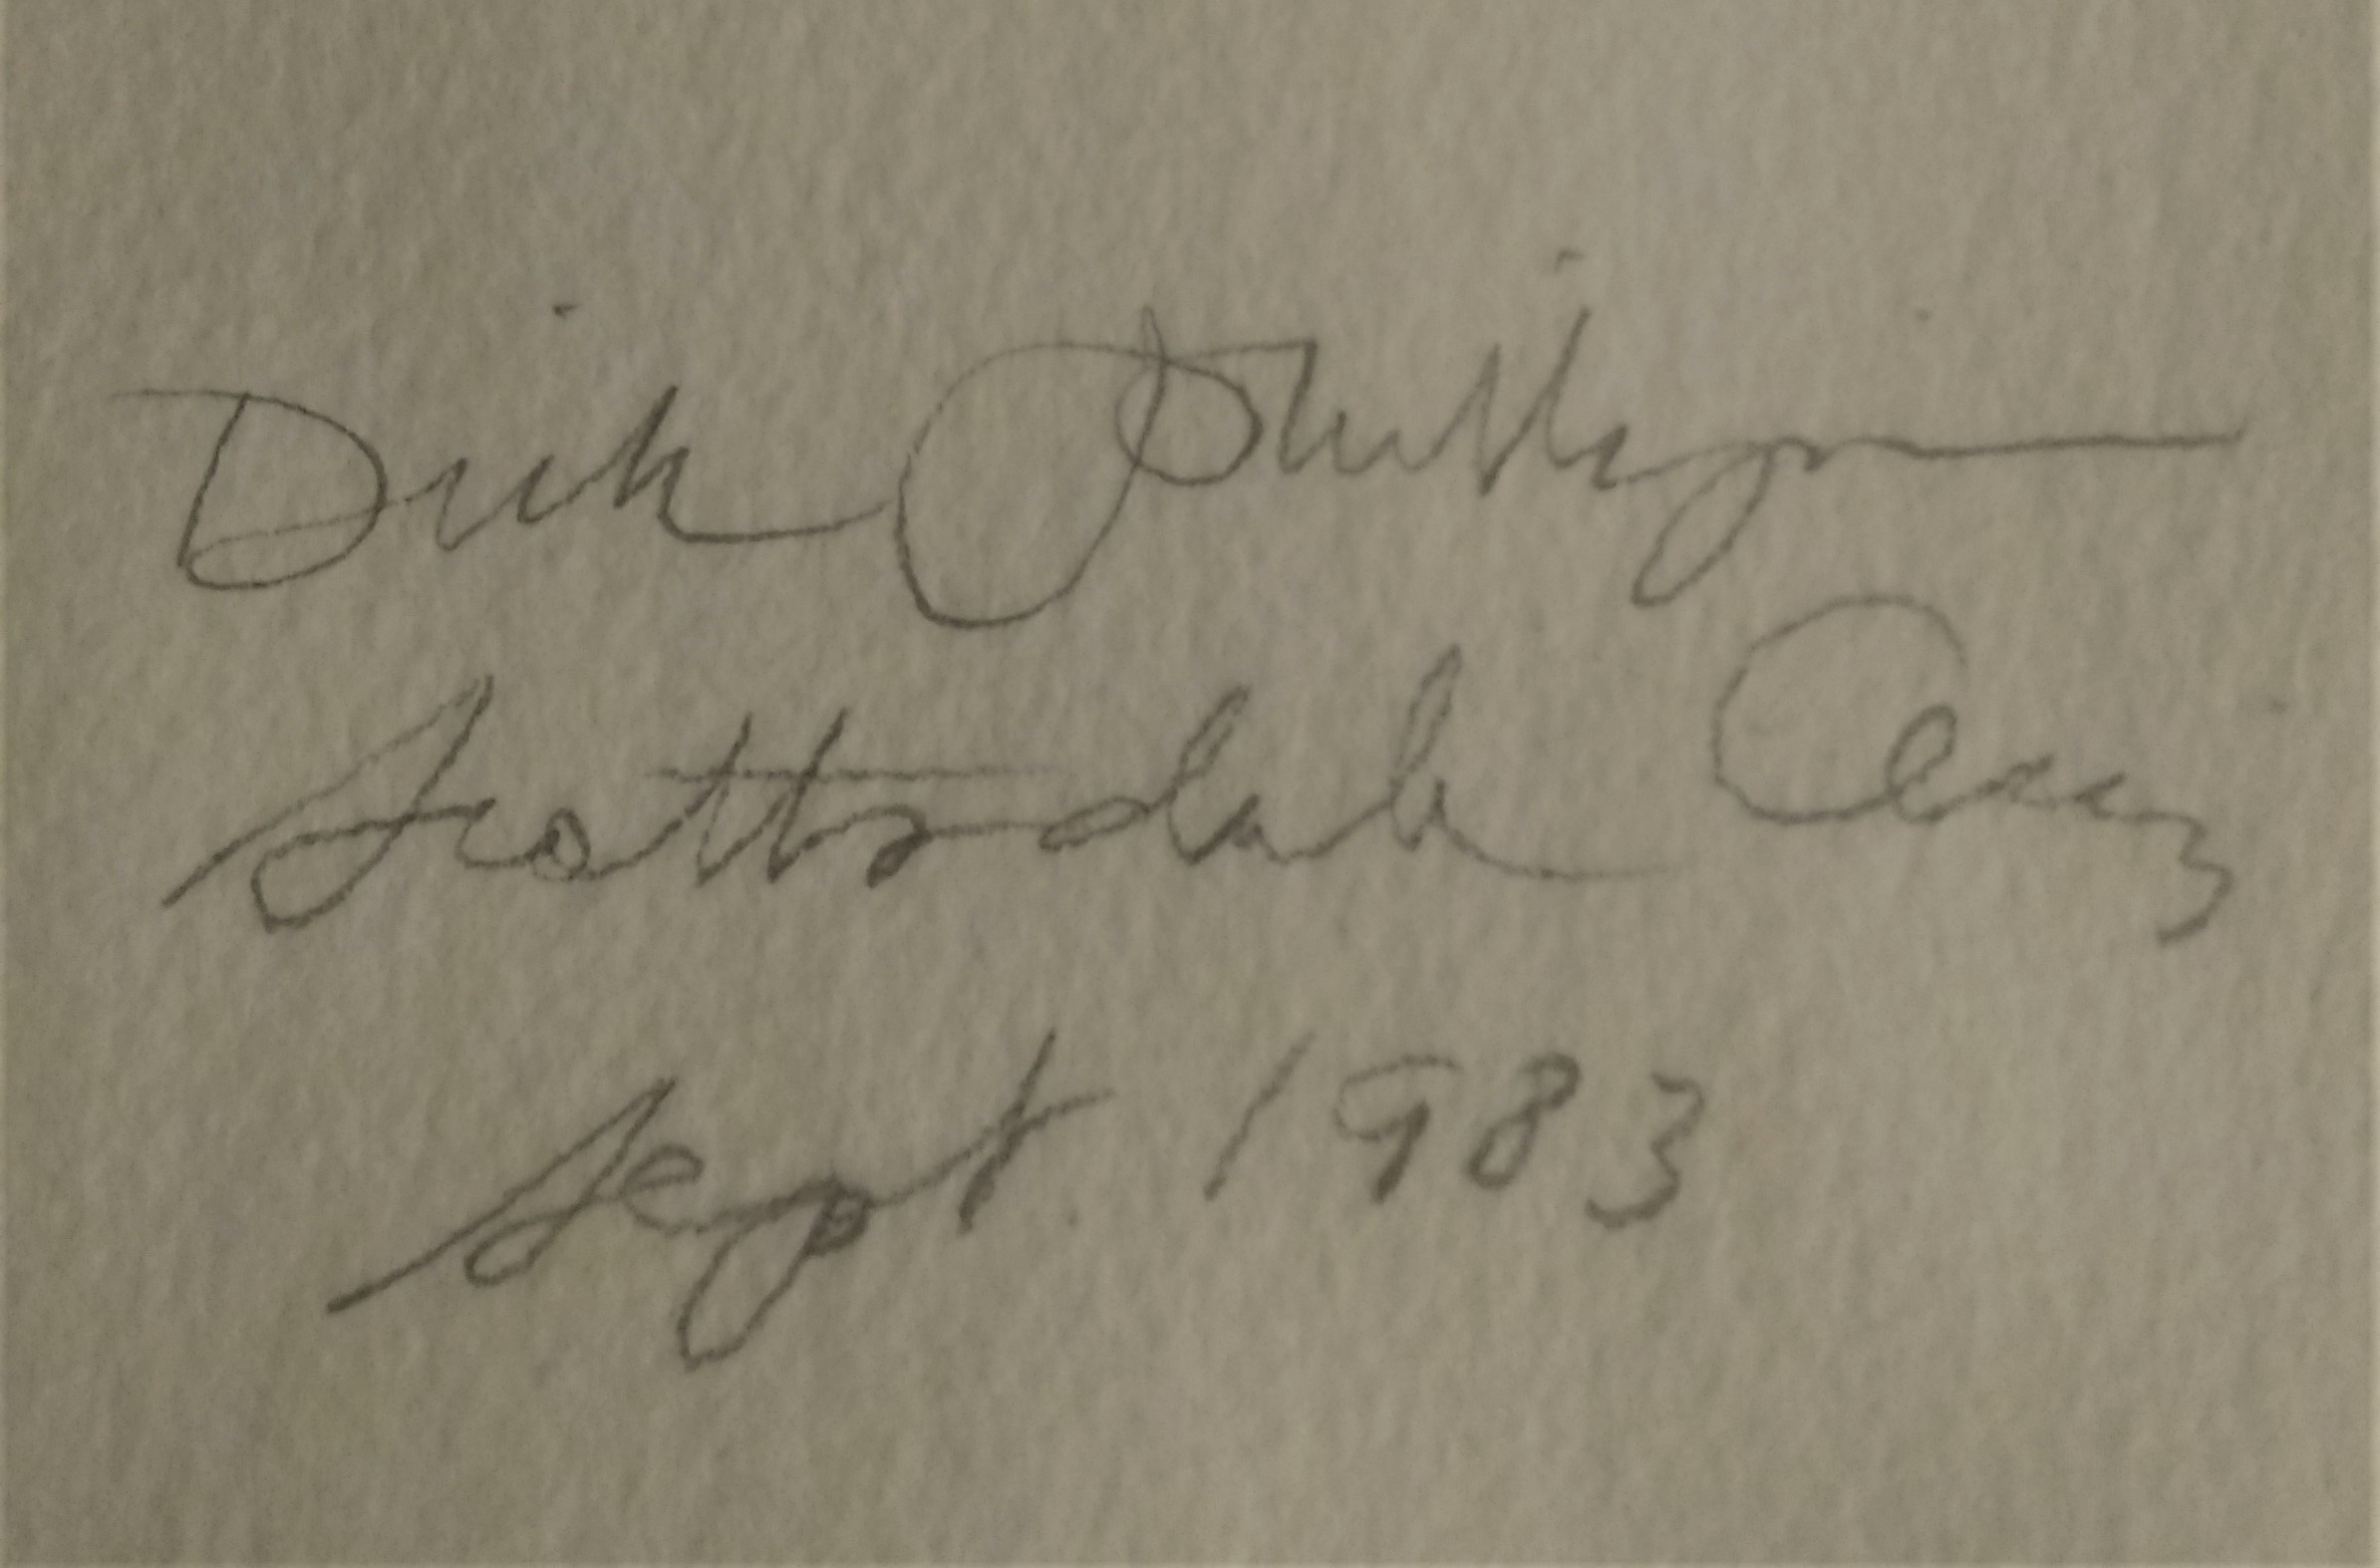 Dick Phillips
Scottsdale Ariz
Sept. 1983